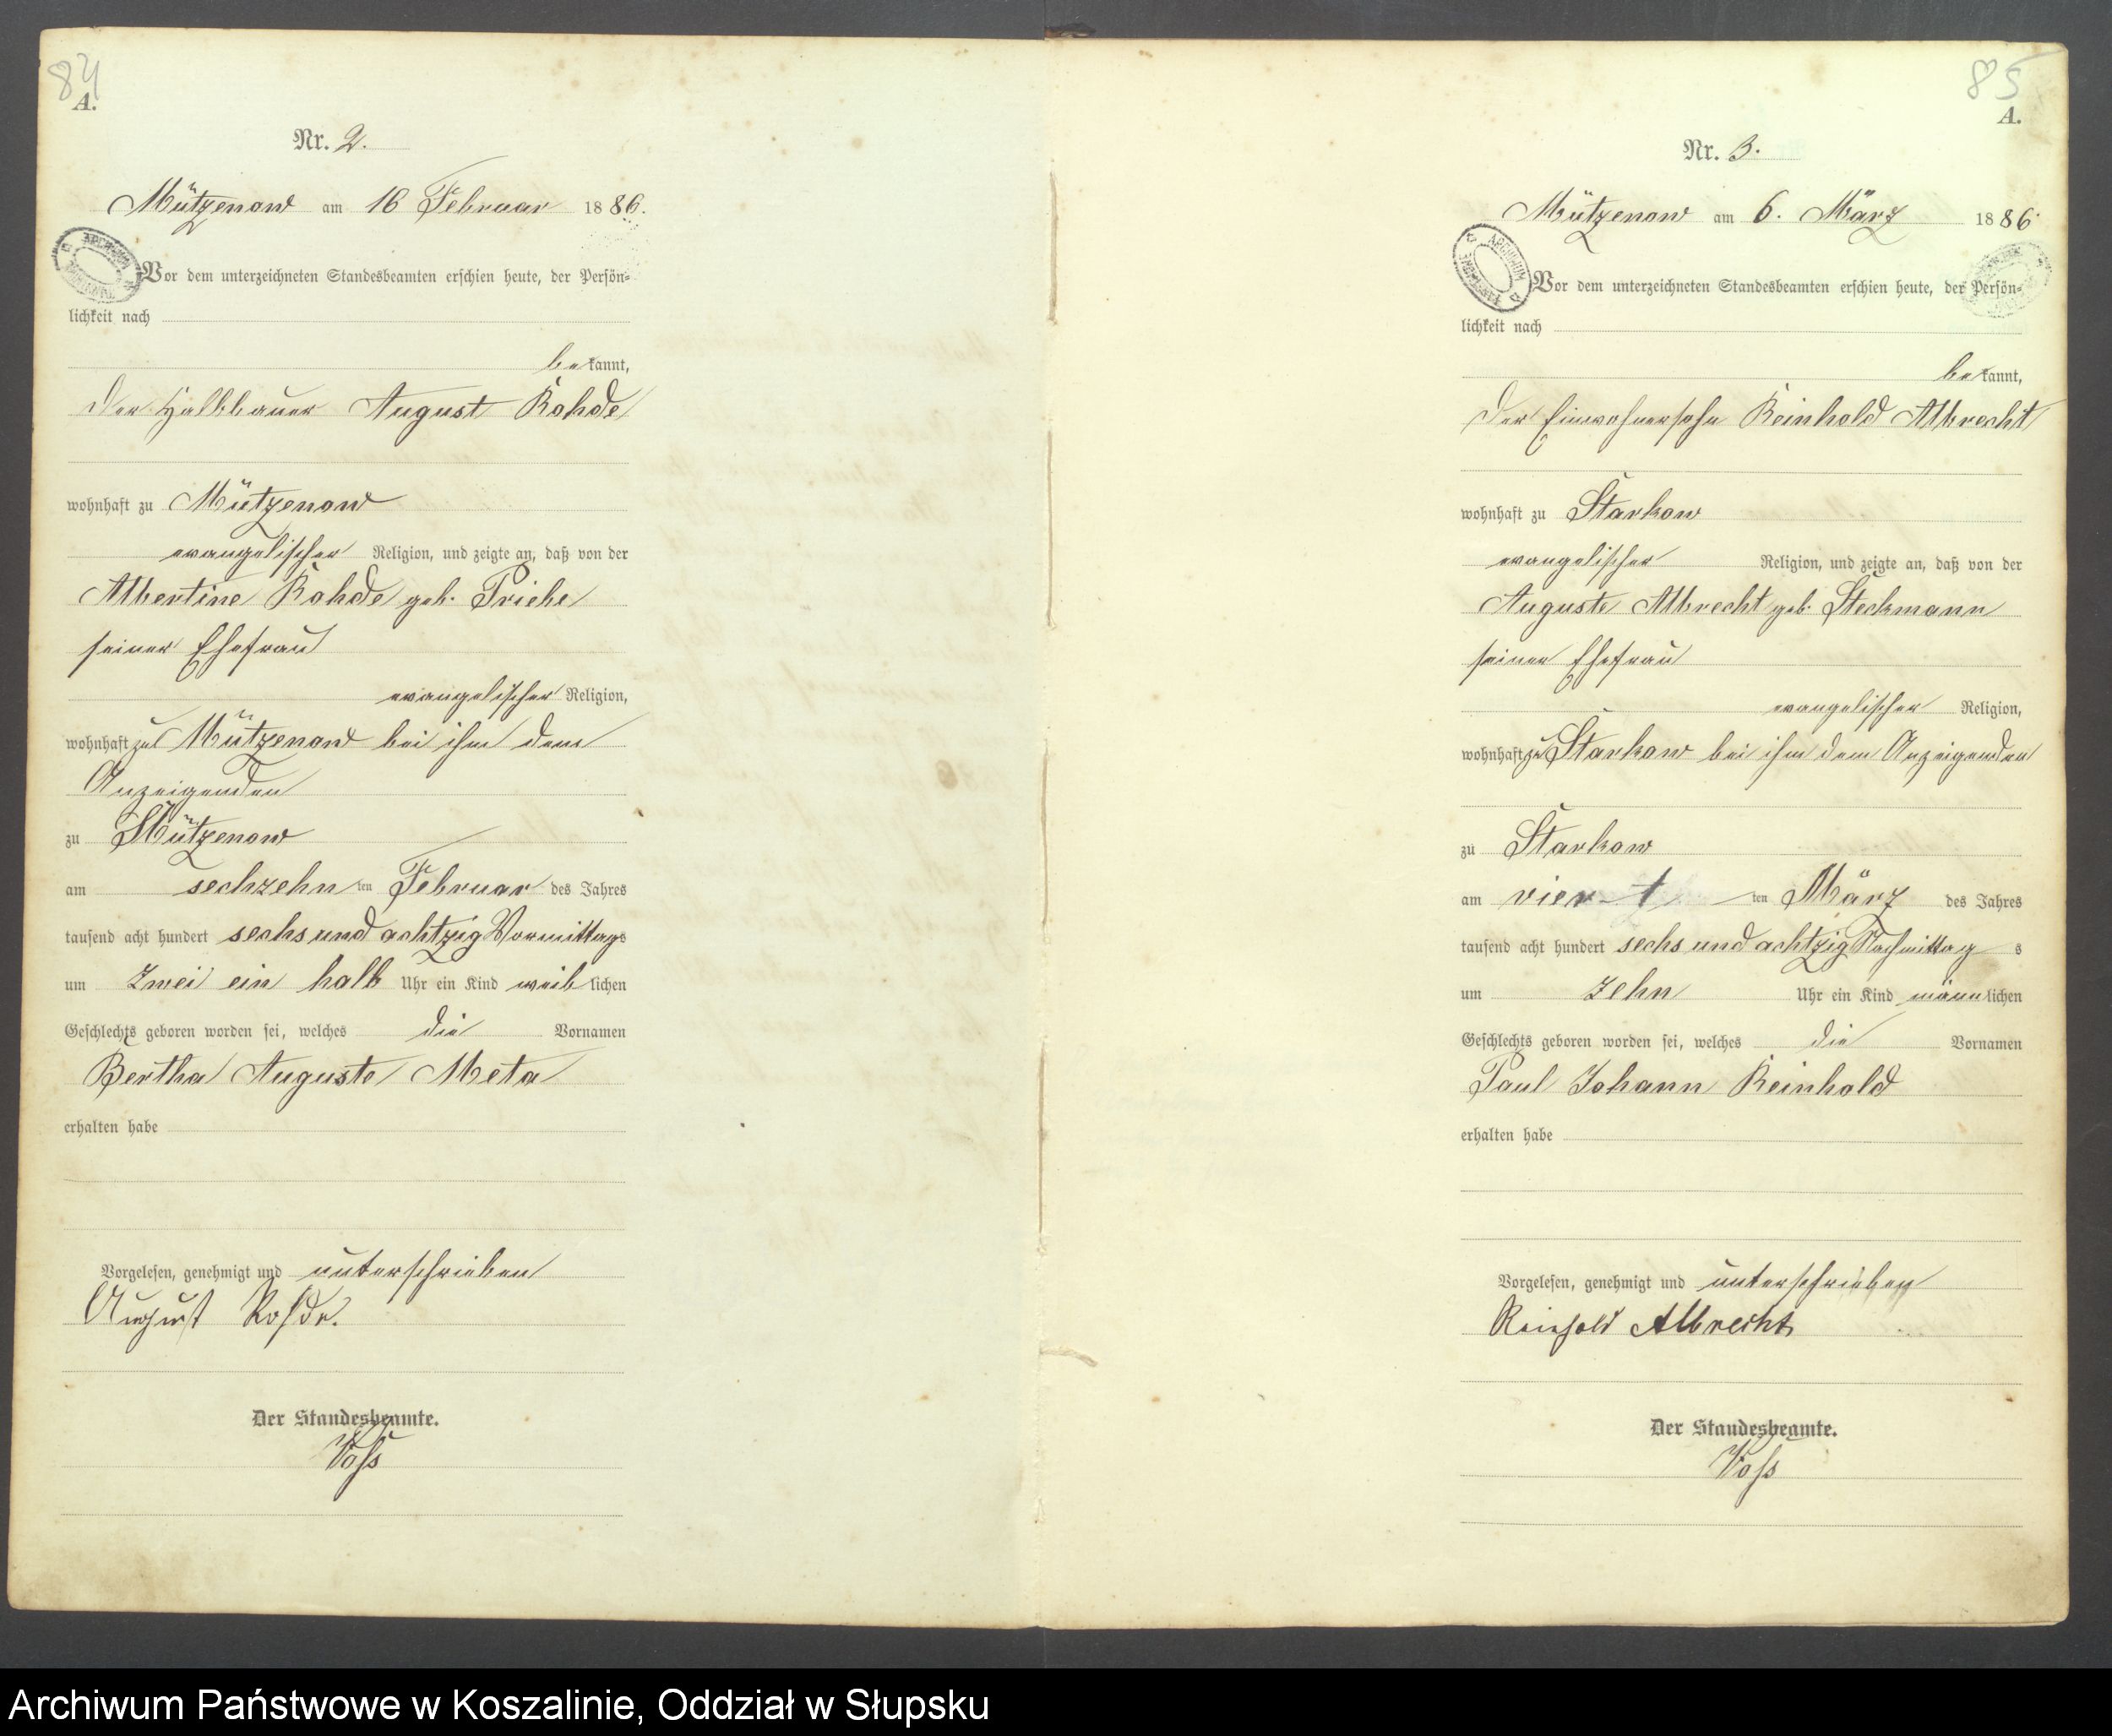 84
A.
Nr. 2.
Mützenow am 16 Februar 1886.
Vor dem unterzeichneten Standesbeamten erschien heute, der Persön-
lichkeit nach
bekannt,
der Halbbauer August Rohde
wohnhaft zu Mützenow
evangelischer Religion, und zeigte an, daß von der
Albertine Rohde geb. Priebe
seiner Ehefrau
evangelischer Religion,
wohnhaft zu Mützenow bei ihm dem
Anzeigenden
zu Mützenow
am sechzehn ten Februar des Jahres
tausend acht hundert sechs und achtzig Vormittags
um zwei ein halb Uhr ein Kind weiblichen
Geschlechts geboren worden sei, welches die Vornamen
Bertha Auguste Meta
erhalten habe
Vorgelesen, genehmigt und unterschrieben
August Rohde.
Der Standesbeamte.
Voss
85
A.
Nr. 3.
Mützenow am 6. März 1886
Vor dem unterzeichneten Standesbeamten erschien heute, der Persön-
lichkeit nach
bekannt,
der Einwohnersohn Reinhold Albrecht
wohnhaft zu Starkow
evangelischer Religion, und zeigte an, daß von der
Auguste Albrecht geb. Steckmann
seiner Ehefrau
evangelischer Religion,
wohnhaft zu Starkow bei ihm dem Anzeigenden
zu Starkow
am vier-t ten März des Jahres
tausend acht hundert sechs und achtzig Nachmittag s
um zehn Uhr ein Kind männlichen
Geschlechts geboren worden sei, welches die Vornamen
Paul Johann Reinhold
erhalten habe
Vorgelesen, genehmigt und unterschrieben
Reinhold Albrecht
Der Standesbeamte.
Voss
Archiwum Państwowe w Koszalinie, Oddział w Słupsku